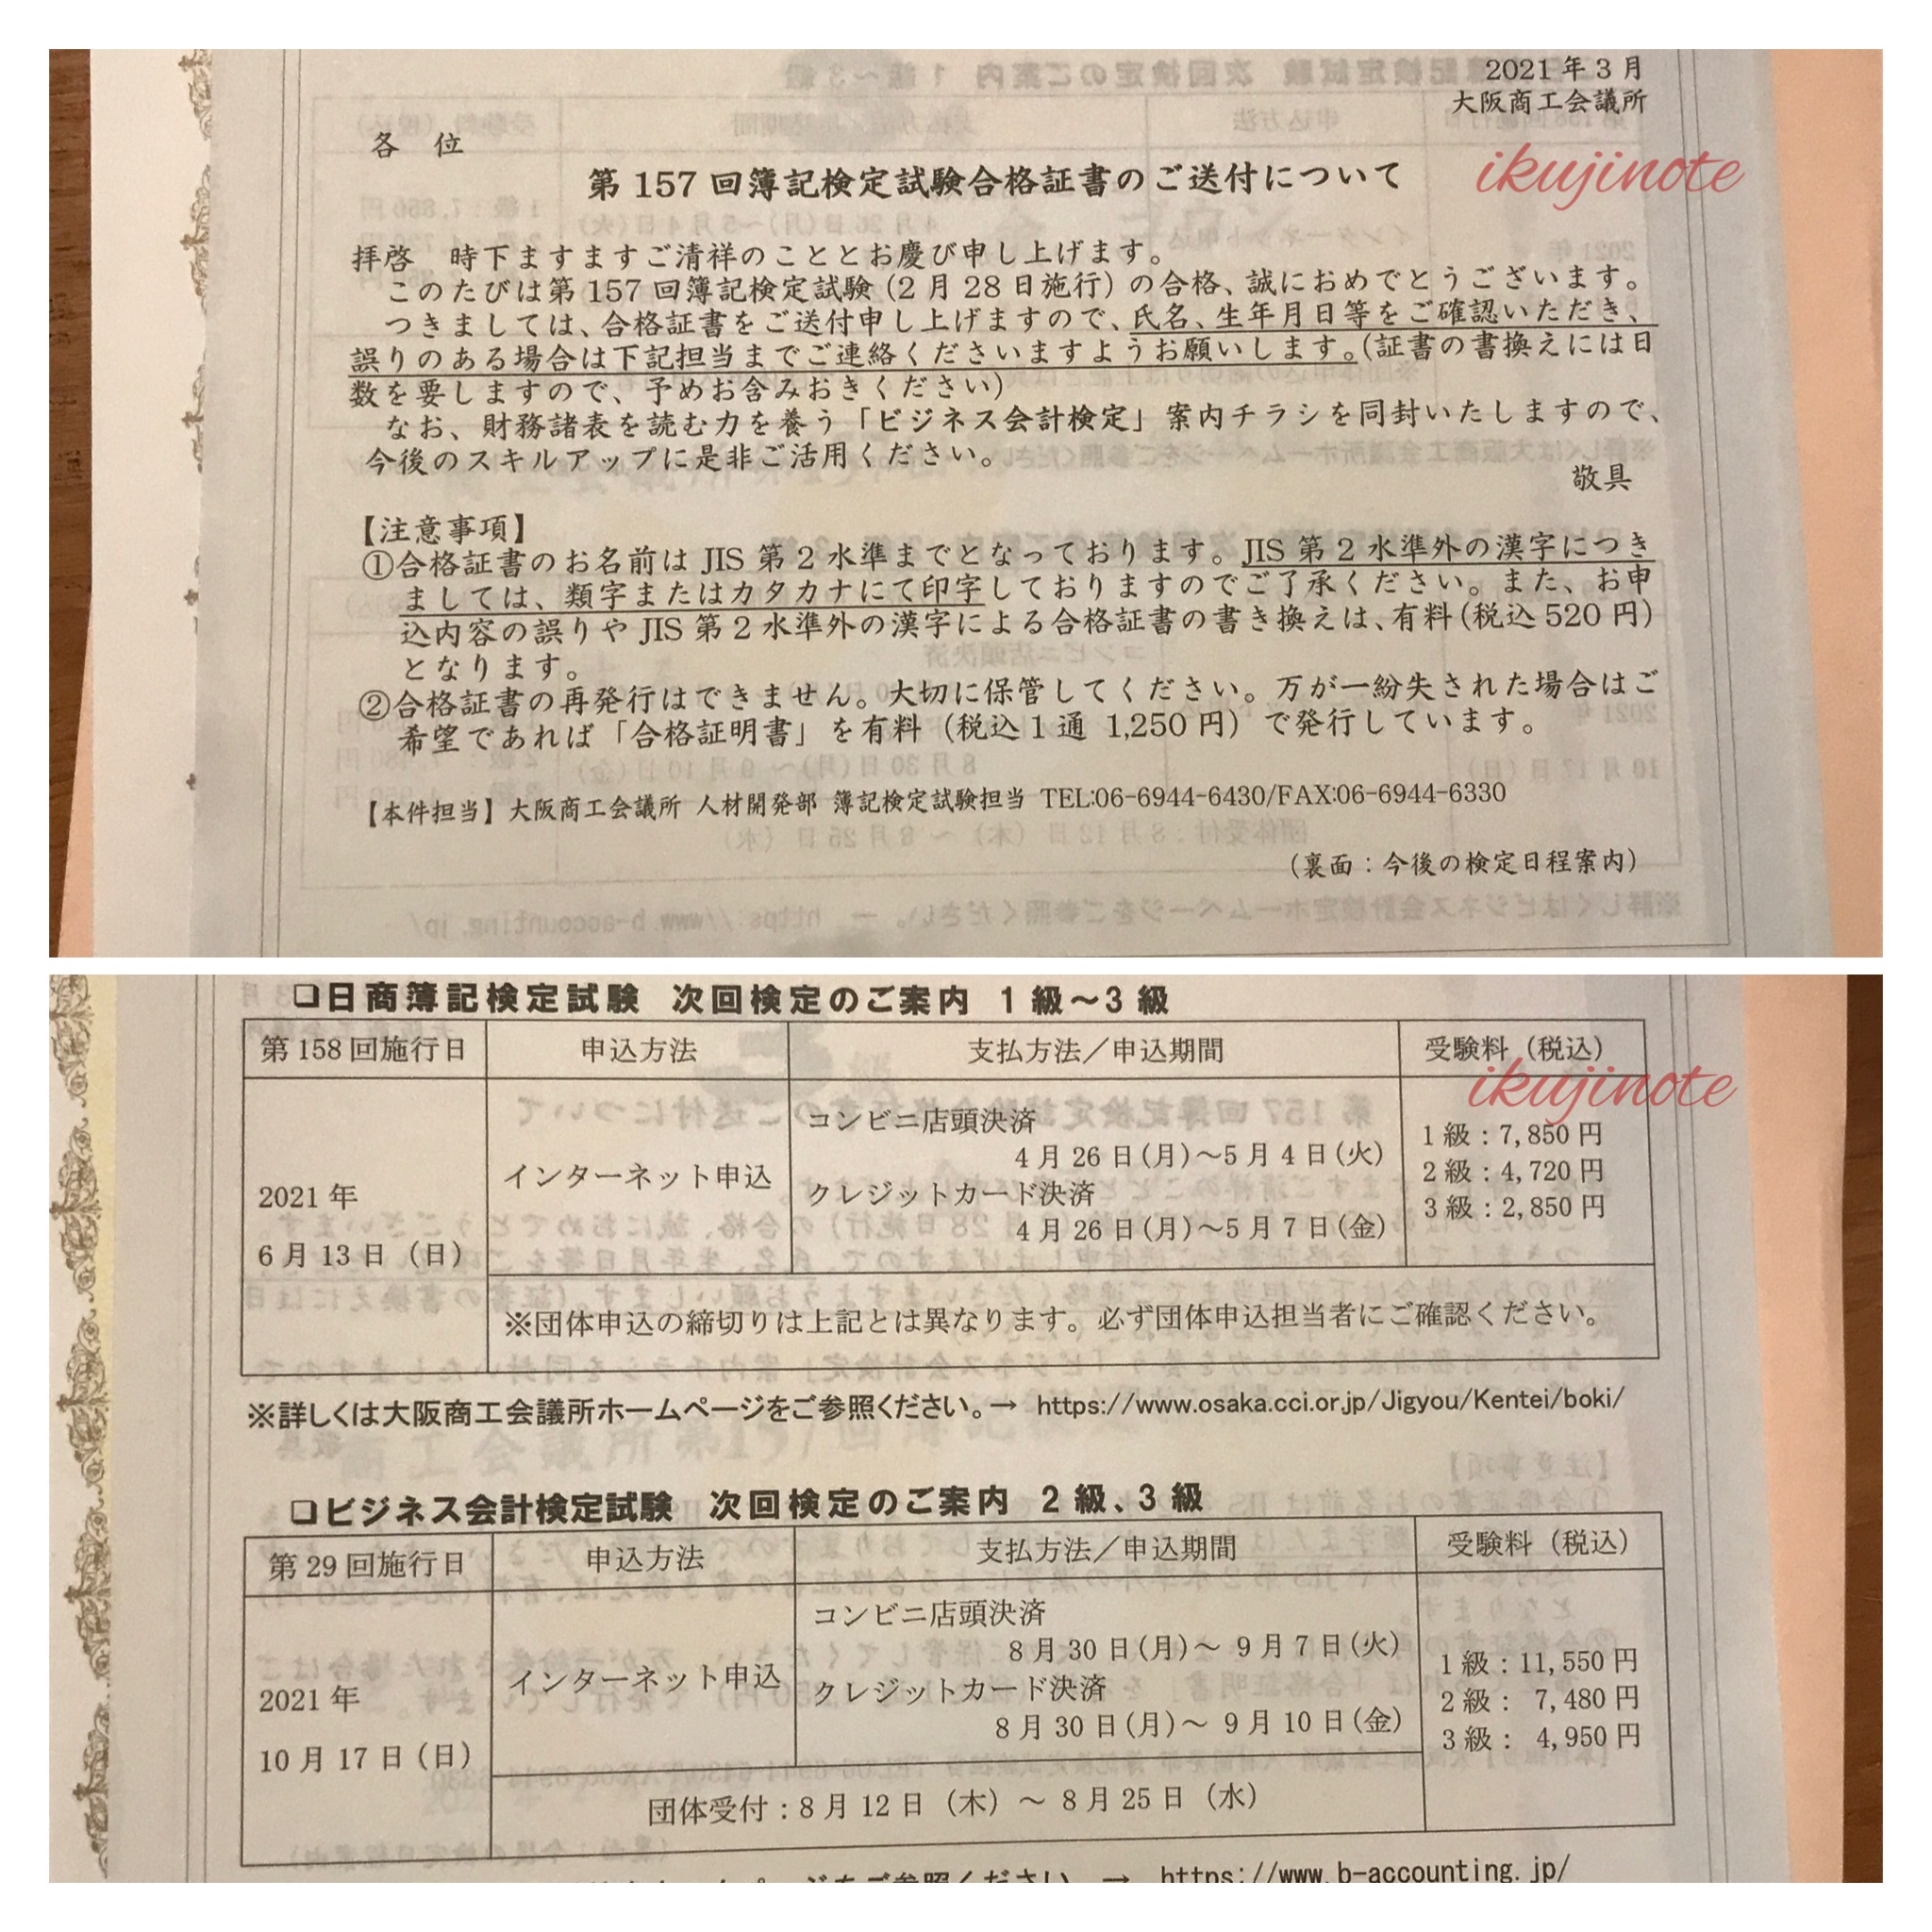 2021年3月
大阪商工会議所
各 位
ikujinote
第157回簿記検定試験合格証書のご送付について
拝啓 時下ますますご清祥のこととお慶び申し上げます。
このたびは第157回簿記検定試験(2月28日施行)の合格、誠におめでとうございます。
つきましては、合格証書をご送付申し上げますので、氏名、生年月日等をご確認いただき、
誤りのある場合は下記担当までご連絡くださいますようお願いします。(証書の書換えには日
数を要しますので、予めお含みおきください)
なお、財務諸表を読む力を養う「ビジネス会計検定」案内チラシを同封いたしますので、
今後のスキルアップに是非ご活用ください。
敬具
【注意事項】
①合格証書のお名前はJIS第2水準までとなっております。JIS第2水準外の漢字につき
ましては、類字またはカタカナにて印字しておりますのでご了承ください。また、お申
込内容の誤りやJIS第2水準外の漢字による合格証書の書き換えは、有料(税込520円)
となります。
②合格証書の再発行はできません。大切に保管してください。万が一紛失された場合はご
希望であれば「合格証明書」を有料(税込1通 1,250円)で発行しています。
【本件担当】大阪商工会議所 人材開発部 簿記検定試験担当 TEL:06-6944-6430/FAX:06-6944-6330
(裏面:今後の検定日程案内)
❏日商簿記検定試験 次回検定のご案内 1級～3級
第158回施行日 申込方法 支払方法／申込期間 受験料(税込)
ikujinote
2021年
6月13日(日)
インターネット申込
コンビニ店頭決済
4月26日(月)～5月4日(火)
クレジットカード決済
4月26日(月)～5月7日(金)
1級:7,850円
2級:4,720円
3級:2,850円
※団体申込の締切りは上記とは異なります。必ず団体申込担当者にご確認ください。
※詳しくは大阪商工会議所ホームページをご参照ください。→ https://www.osaka.cci.or.jp/Jigyou/Kentei/boki/
❏ビジネス会計検定試験 次回検定のご案内 2級、3級
第29回施行日 申込方法 支払方法／申込期間 受験料(税込)
2021年
10月17日(日)
インターネット申込
コンビニ店頭決済
8月30日(月)～ 9月7日(火)
クレジットカード決済
8月30日(月)～ 9月10日(金)
1級:11,550円
2級: 7,480円
3級: 4,950円
団体受付:8月12日(木)～ 8月25日(水)
ページをご参照ください → https://www.b-accounting.jp/